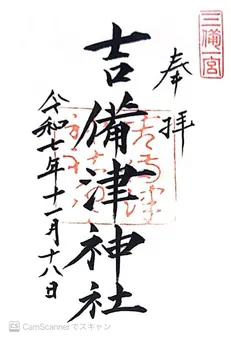 三備一宮
奉拝
吉備津神社
令和七年十一月十八日
CS CamScannerでスキャン